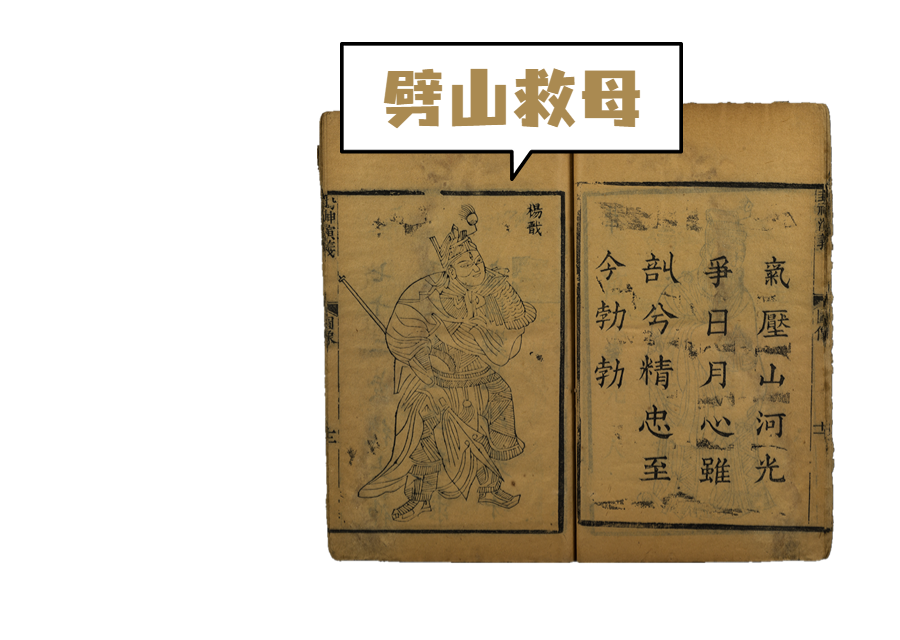 劈山救母
楊戩
氣壓山河光
爭日月心雖
剖兮精忠至
今勃勃
神演義
圖像
十二